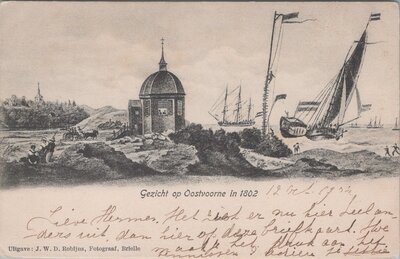 Gezicht op Oostvoorne in 1802
12 Oct 1902
Lieve Hermes, Het ziet er nu hier heel an-
ders uit dan hier op deze briefkaart. We
maakt het druk aan het
Uitgave: J. W. D. Robijns, Fotograaf, Brielle